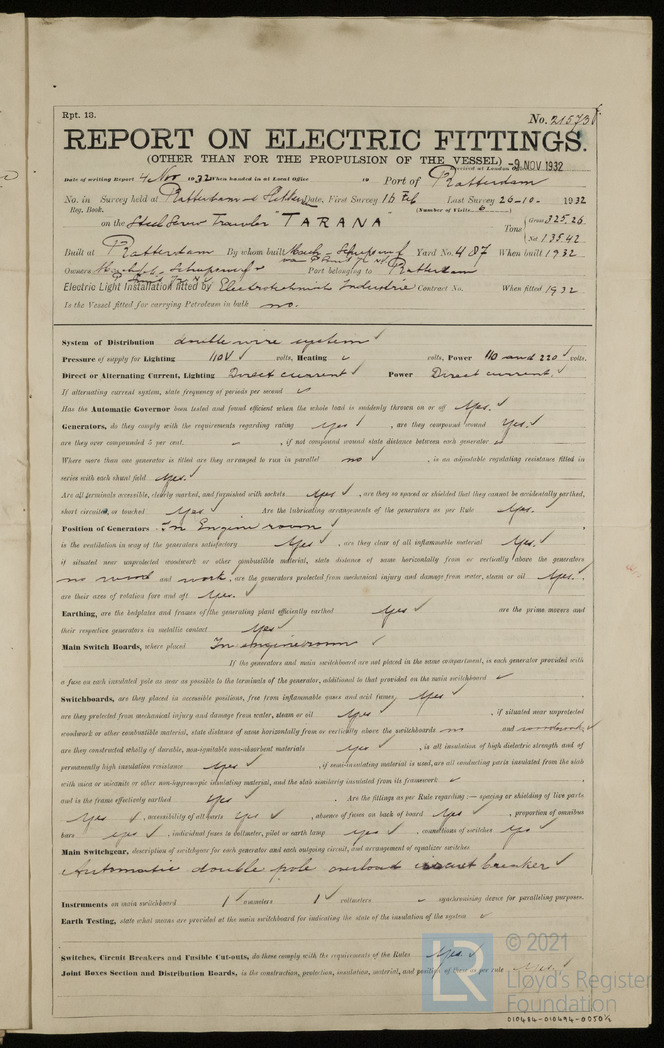 Rpt. 13.
No. 21573
REPORT ON ELECTRIC FITTINGS.
(OTHER THAN FOR THE PROPULSION OF THE VESSEL) -9 NOV 1932
Date of writing Report 4 Nov 1932 When handed in at Local Office 19 Port of Rotterdam
No. in Survey held at Rotterdam Date, First Survey 16 Feb Last Survey 26-10- 1932
Reg. Book. (Number of Visits 6 )
on the Steel Screw Trawler "TARANA" Tons Gross 325.26
Net 135.42
Built at Rotterdam By whom built Yard No. 487 When built 1932
Owners Port belonging to Rotterdam
Electric Light Installation fitted by Electrotechnische Industrie Contract No. When fitted 1932
Is the Vessel fitted for carrying Petroleum in bulk no.
System of Distribution double wire system ✓
Pressure of supply for Lighting 110V ✓ volts, Heating ✓ volts, Power 110 and 220 ✓ volts.
Direct or Alternating Current, Lighting Direct current ✓ Power Direct current. ✓
If alternating current system, state frequency of periods per second ✓
Has the Automatic Governor been tested and found efficient when the whole load is suddenly thrown on or off Yes. ✓
Generators, do they comply with the requirements regarding rating yes ✓ , are they compound wound yes. ✓
are they over compounded 5 per cent. - , if not compound wound state distance between each generator
Where more than one generator is fitted are they arranged to run in parallel no ✓ , is an adjustable regulating resistance fitted in
series with each shunt field yes. ✓
Are all terminals accessible, clearly marked, and furnished with sockets yes ✓ , are they so spaced or shielded that they cannot be accidentally earthed,
short circuited, or touched yes ✓ Are the lubricating arrangements of the generators as per Rule yes.
Position of Generators In Engine room ✓
is the ventilation in way of the generators satisfactory yes ✓ , are they clear of all inflammable material yes. ✓
if situated near unprotected woodwork or other combustible material, state distance of same horizontally from or vertically above the generators
no wood and work , are the generators protected from mechanical injury and damage from water, steam or oil yes. ✓
are their axes of rotation fore and aft yes. ✓
Earthing, are the bedplates and frames of the generating plant efficiently earthed yes ✓ are the prime movers and
their respective generators in metallic contact yes ✓
Main Switch Boards, where placed In engineroom ✓
If the generators and main switchboard are not placed in the same compartment, is each generator provided with
a fuse on each insulated pole as near as possible to the terminals of the generator, additional to that provided on the main switchboard ✓
Switchboards, are they placed in accessible positions, free from inflammable gases and acid fumes yes ✓
are they protected from mechanical injury and damage from water, steam or oil yes ✓ , if situated near unprotected
woodwork or other combustible material, state distance of same horizontally from or vertically above the switchboards no and woodwork. ✓
are they constructed wholly of durable, non-ignitable non-absorbent materials yes ✓ , is all insulation of high dielectric strength and of
permanently high insulation resistance yes ✓ , if semi-insulating material is used, are all conducting parts insulated from the slab
with mica or micanite or other non-hygroscopic insulating material, and the slab similarly insulated from its framework ✓
and is the frame effectively earthed yes ✓ . Are the fittings as per Rule regarding :— spacing or shielding of live parts
yes ✓ , accessibility of all parts yes ✓ , absence of fuses on back of board yes ✓ , proportion of omnibus
bars yes ✓ , individual fuses to voltmeter, pilot or earth lamp yes ✓ , connections of switches yes ✓
Main Switchgear, description of switchgear for each generator and each outgoing circuit, and arrangement of equalizer switches
Automatic double pole overload circuit breaker ✓
Instruments on main switchboard 1 ✓ ammeters 1 ✓ voltmeters ✓ synchronising device for paralleling purposes.
Earth Testing, state what means are provided at the main switchboard for indicating the state of the insulation of the system ✓
Switches, Circuit Breakers and Fusible Cut-outs, do these comply with the requirements of the Rules yes. ✓
Joint Boxes Section and Distribution Boards, is the construction, protection, insulation, material, and position of these as per rule yes. ✓
© 2021
LR
Lloyd's Register
Foundation
010484-010494-0050½